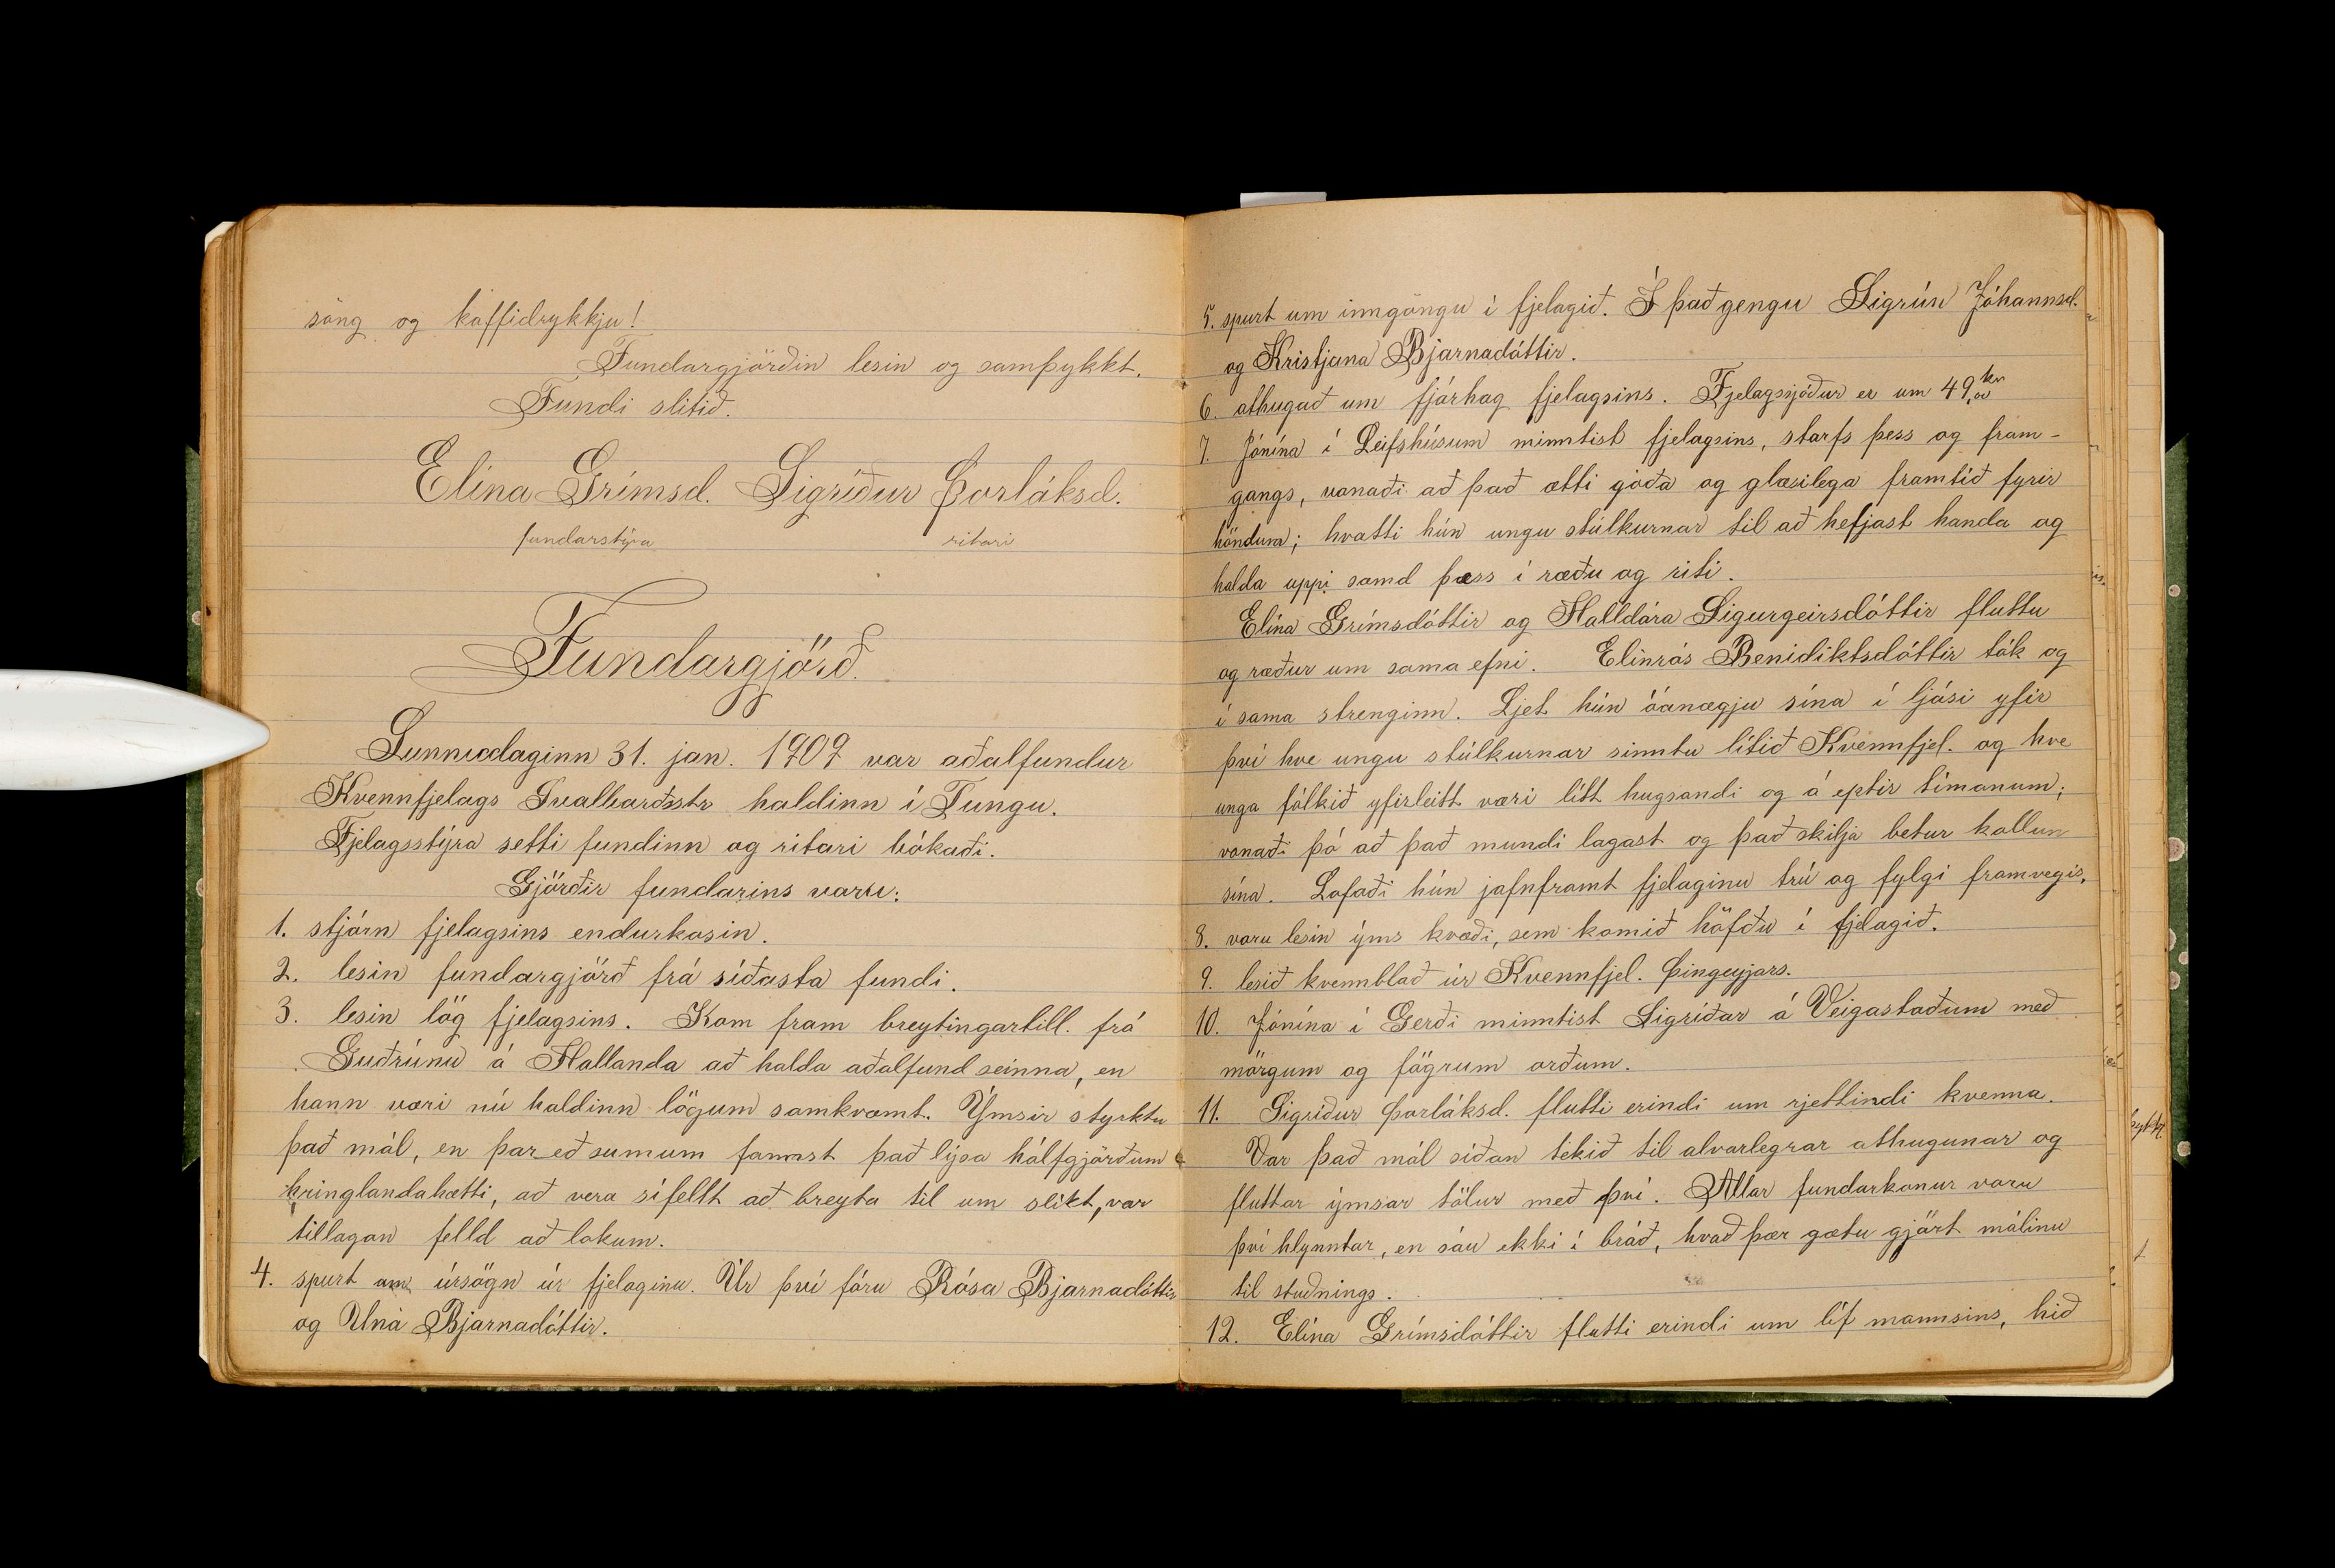 söng og kaffidrykkju!
Fundargjörðin lesin og samþykkt.
Fundi slitið.
Elína Grímsd. Sigríður Þorláksd.
fundarstýra ritari
Fundargjörð.
Sunnudaginn 31. jan. 1909 var aðalfundur
Kvennfjelags Svalbarðsstr haldinn í Tungu.
Fjelagsstýra setti fundinn og ritari bókaði.
Gjörðir fundarins voru:
1. stjórn fjelagsins endurkosin.
2. lesin fundargjörð frá síðasta fundi.
3. lesin lög fjelagsins. Kom fram breytingartill. frá
Guðrúnu á Hallanda að halda aðalfund seinna, en
hann væri nú haldinn lögum samkvæmt. Ýmsir styrktu
það mál, en þar eð sumum fannst það lýsa hálfgjörðum
hringlandahætti, að vera sífellt að breyta til um slíkt, var
tillagan felld að lokum.
4. spurt um úrsögn úr fjelaginu. Úr því fóru Rósa Bjarnadóttir
og Una Bjarnadóttir.
5. spurt um inngöngu í fjelagið. Í það gengu Sigrún Jóhannsd.
og Kristjana Bjarnadóttir.
6. athugað um fjárhag fjelagsins. Fjelagssjóður er um 49,00 kr
7. Jónína í Leifshúsum minntist fjelagsins, starfs þess og fram-
gangs, vonaði að það ætti góða og glæsilega framtíð fyrir
höndum; hvatti hún ungu stúlkurnar til að hefjast handa og
halda uppi sæmd þess í ræðu og riti.
Elína Grímsdóttir og Halldóra Sigurgeirsdóttir fluttu
og ræður um sama efni. Elínrós Benidiktsdóttir tók og
í sama strenginn. Ljet hún óánægju sína í ljósi yfir
því hve ungu stúlkurnar sinntu lítið Kvennfjel. og hve
unga fólkið yfirleitt væri lítt hugsandi og á eptir tímanum;
vonaði þó að það mundi lagast og það skilja betur köllun
sína. Lofaði hún jafnframt fjelaginu trú og fylgi framvegis.
8. voru lesin ýms kvæði, sem komið höfðu í fjelagið.
9. lesið kvennblað úr Kvennfjel. Þingeyjars.
10. Jónína í Gerði minntist Sigríðar á Veigastöðum með
mörgum og fögrum orðum.
11. Sigríður Þorláksd. flutti erindi um rjettindi kvenna.
Var það mál síðan tekið til alvarlegrar athugunar og
fluttar ýmsar tölur með því. Allar fundarkonur voru
því hlynntar, en sáu ekki í bráð, hvað þær gætu gjört málinu
til stuðnings.
12. Elína Grímsdóttir flutti erindi um líf mannsins, hið